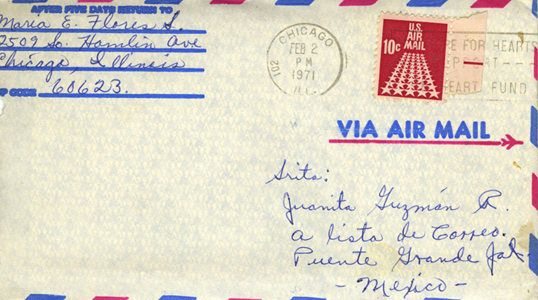 AFTER FIVE DAYS RETURN TO
Maria E. Flores S.
2509 So. Hamlin Ave
Chicago, Illinois
P CODE 60623.
CHICAGO
FEB 2
PM
1971
ILL.
102
U.S.
AIR
MAIL
10c
RE FOR HEARTS
HEART FUND
VIA AIR MAIL
Srita:
Juanita Guzmán R.
a lista de Correo.
Puente Grande Jal.
- Mexico -